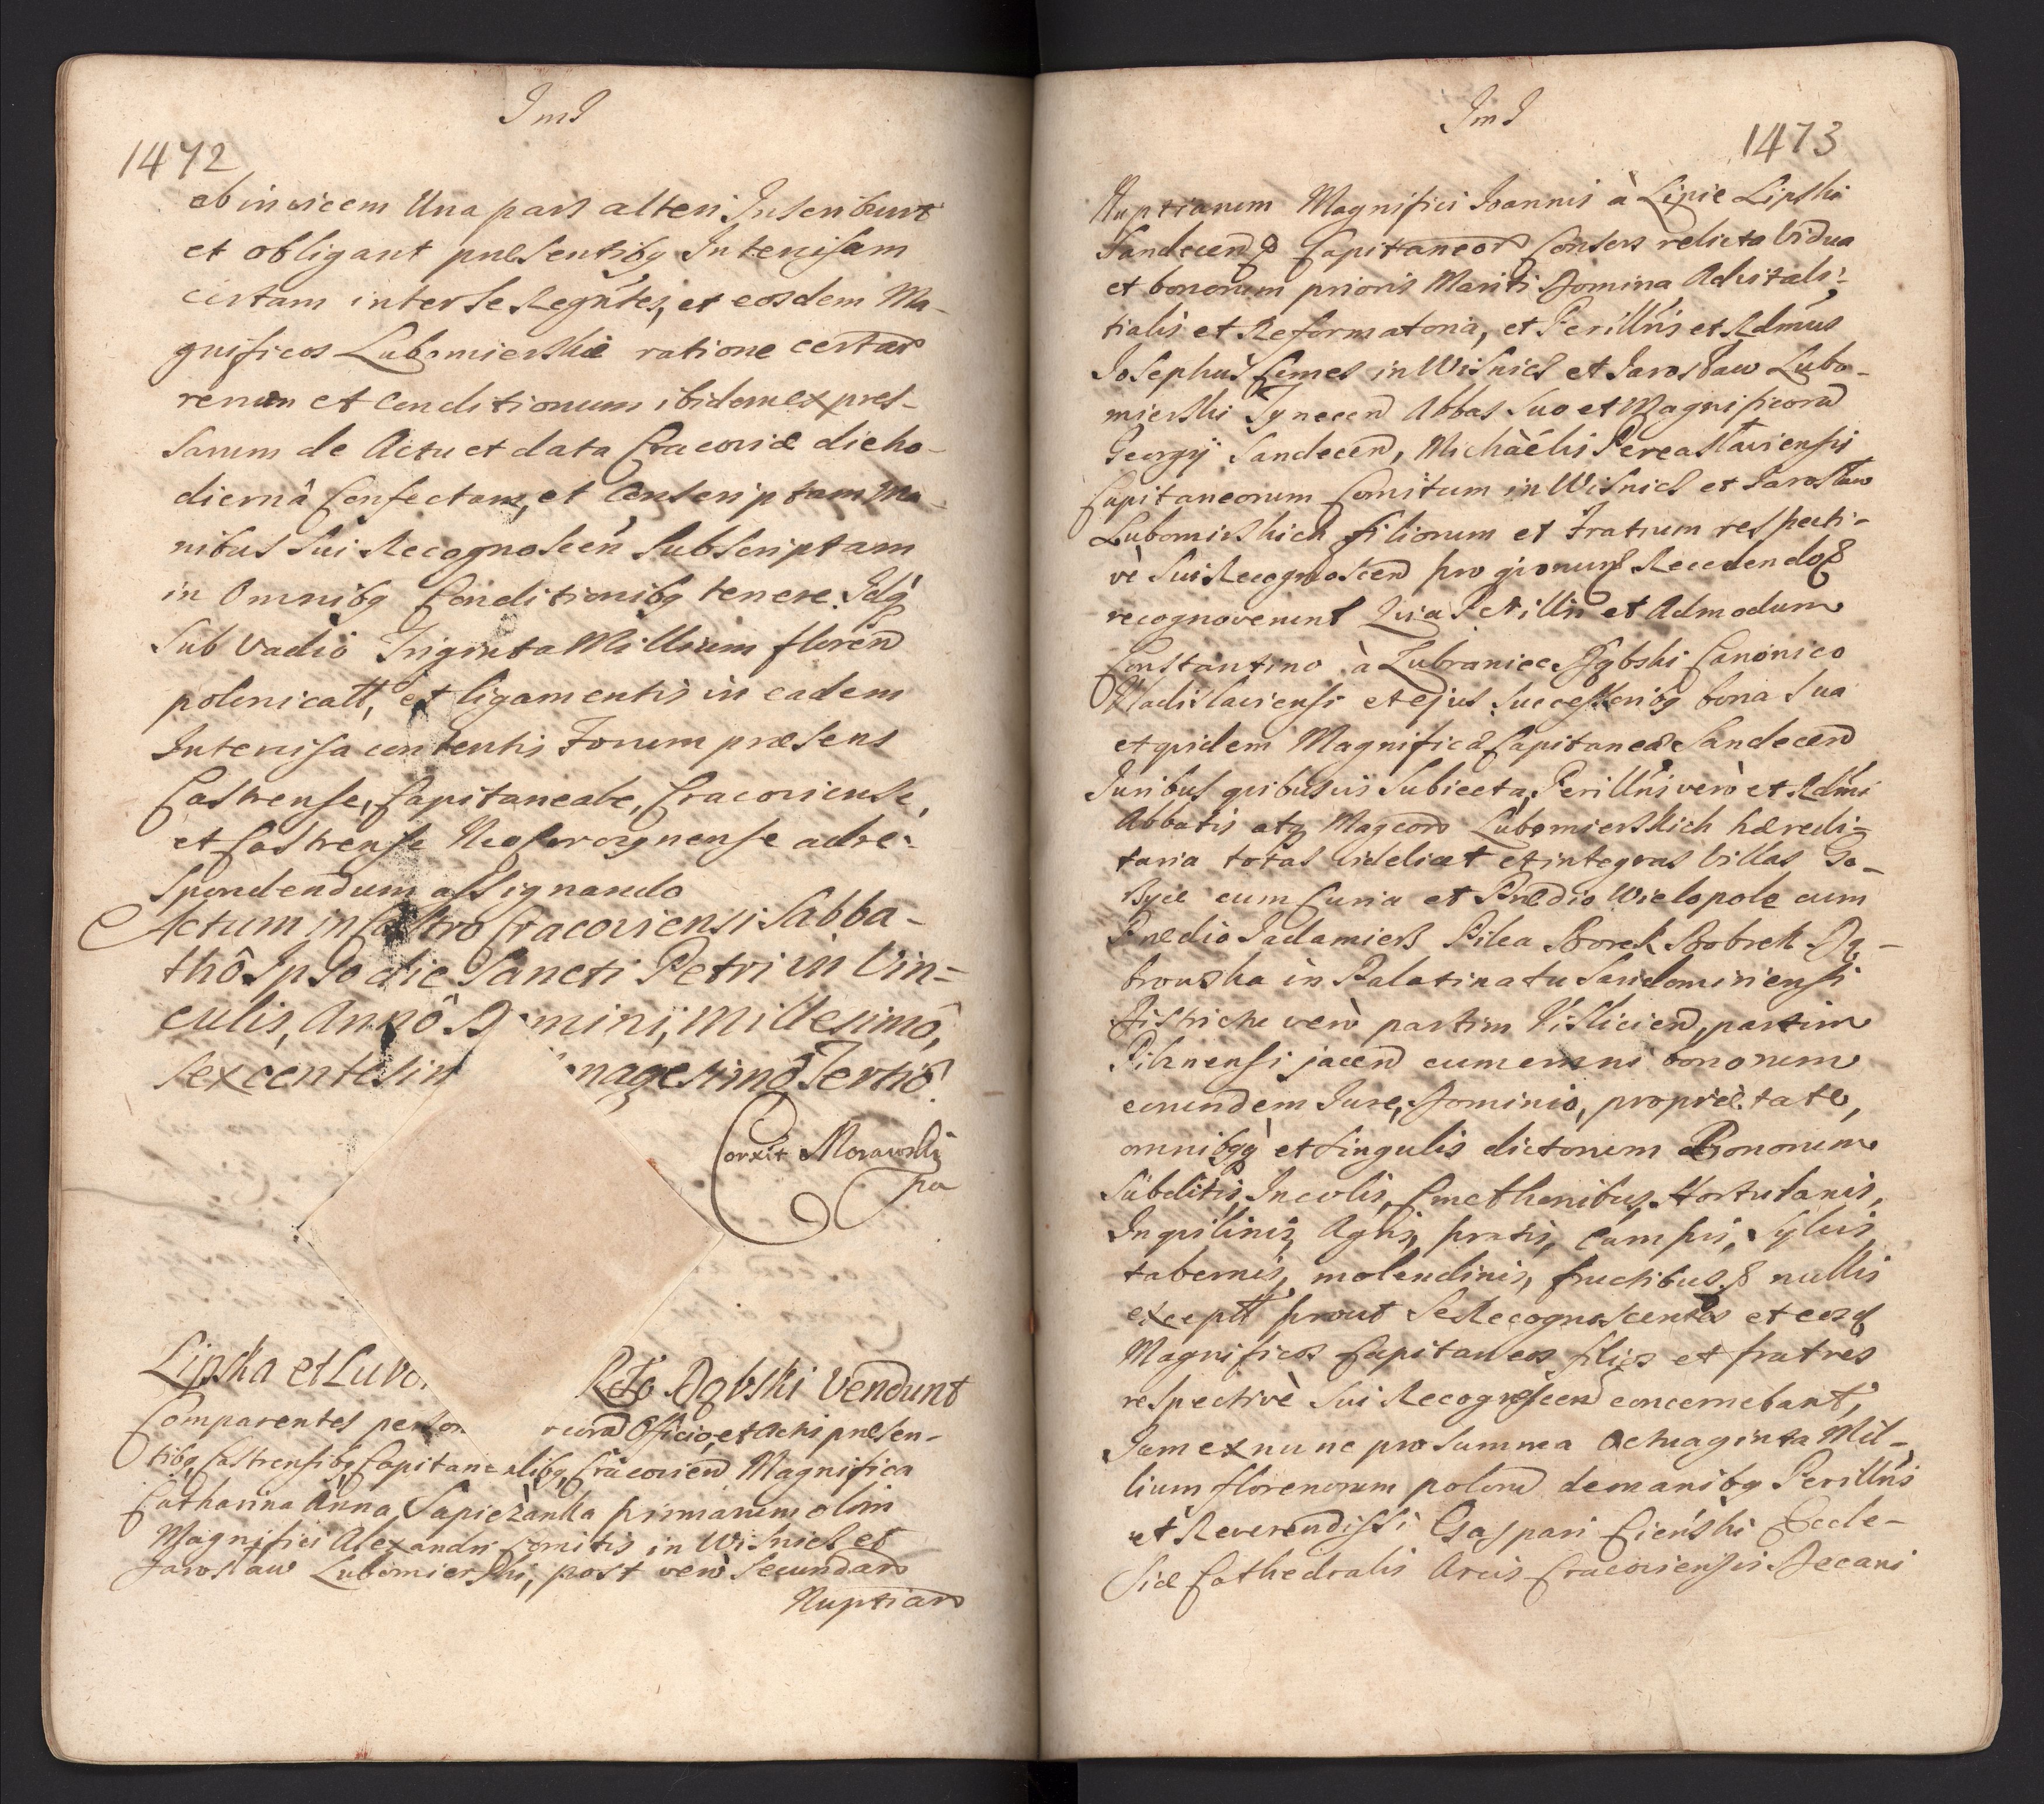 ImI
1472
ab invicem Una pars alteri Inscribunt
et obligant præsentibq Intercisam
certam inter se Regñtes, et eosdem Ma-
gnificos Lubomierskie ratione certar
rerum et Conditionum ibidem expres-
sarum de Actu et data Cracoviæ die ho-
diernâ Confectam, et Conscriptam Ma-
nibus Sui Recognoscen Subscriptam
in Omnibq Conditionibq tenere. Idq
Sub Vadio Triginta Millium floren
polonicatt, et ligamentis in eadem
Intercisa contentis Forum præsens
Castrense, Capitaneale, Cracoviense,
et Castrense Neoforoynense ad re-
spondendum assignando
Actum in Castro Cracoviensi Sabba-
thô Ipso die Sancti Petri in Vin-
culis, Annô Domini, Millesimô,
sexcentesim nagesimô Tertiô.
Corxit Morawski
pa
Lipska et Lubo RDo Dąbski Vendunt
Comparentes person coram Officio, et Actis præsen-
tibq, Castrensibq, Capitanealibq, Cracovien Magnifica
Catharina Anna Sapieżanka primarum olim
Magnifici Alexandri Comitis in Wisnicz et
Jarosław Lubomierski, post verò Secundar
Nuptiar
ImI
1473
Nuptiarum Magnifici Joannis à Lipie Lipski
Sandecen & Capitaneor Consors relicta Vidua
et bonorum prioris Mariti Domina Advitali-
tialis et Reformatoria, et Perillris et Rdmus
Josephus Comes in Wisnicz et Jarosław Lubo-
mierski Tynecen Abbas Suo et Magnificoru
Georgij Sandecen, Michàélis Pereasłaviensis
Capitaneorum Comitum in Wisnicz et Jarosław
Lubomirskich filiorum et Fratrum respecti-
vè Sui Recognoscen pro quorum Recedendo &
recognoverunt Quia Perillri et Admodum
Constantino à Lubraniec Dąbski Canonico
Vladislaviensi et ejus Successoribq bona Sua
et quidem Magnificæ Capitaneæ Sandecen
Juribus quibusvis Subiecta, Perillris verò et Rdmi
Abbatis atq Magcor Lubomierskich hæredi-
taria totas videlicet et integras Villas Go-
Byce cum Curia et Prædio Wielopole cum
Prædio Jadamierz Pilea Borek Bobrek Dą-
browska in Palatinatu Sandomiriensi
Districtu verò partim Vislicien, partim
Pilznensi jacen cum omni bonorum
eorundem Jure, Dominio, proprietate,
omnibqq et Singulis dictorum Bonorum
Subditis, Incolis, Cmethonibus, Hortulanis,
Inquilinis, Agris, pratis, Campis, Sylvis,
tabernis, molendinis, fructibus, & nullis
exceptt prout Se Recognoscentes et eosq
Magnificos Capitaneos filios et fratres
respectivè Sui Recognoscen concernebant,
Jam ex nunc pro Summa Octuaginta Mil-
lium florenorum polon de manibq Perillris
et Reverendissi Gaspari Cieński Eccle-
siæ Cathedralis Arcis Cracoviensis Decani